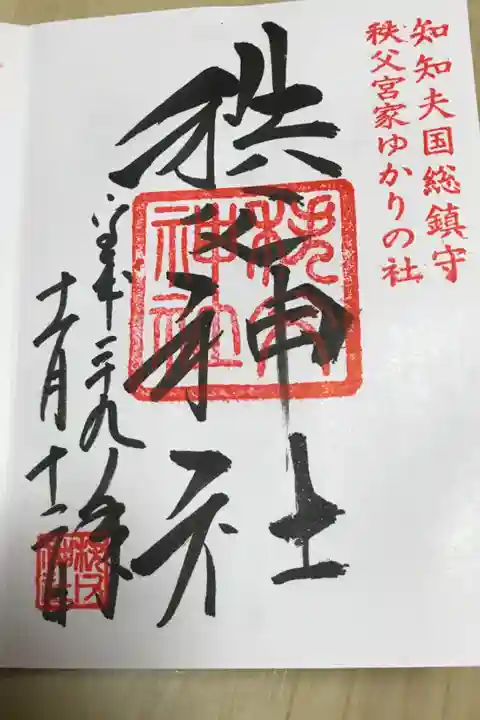 知知夫国総鎮守
秩父宮家ゆかりの社
秩父神社
秩父
神社
平成二十九年
十一月十二日